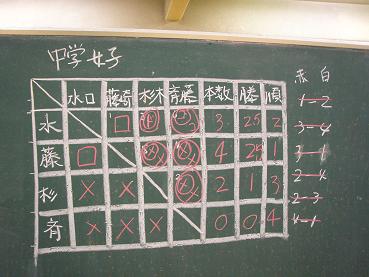 中学女子
赤 白
水口 藤崎 杉木 斉藤 本数 勝 順
1-2
水 □ 3 25 2
3-4
藤 □ 4 25 1
3-1
2-4
杉 × × 2 1 3
2-3
斉 × × × 0 0 4
4-1